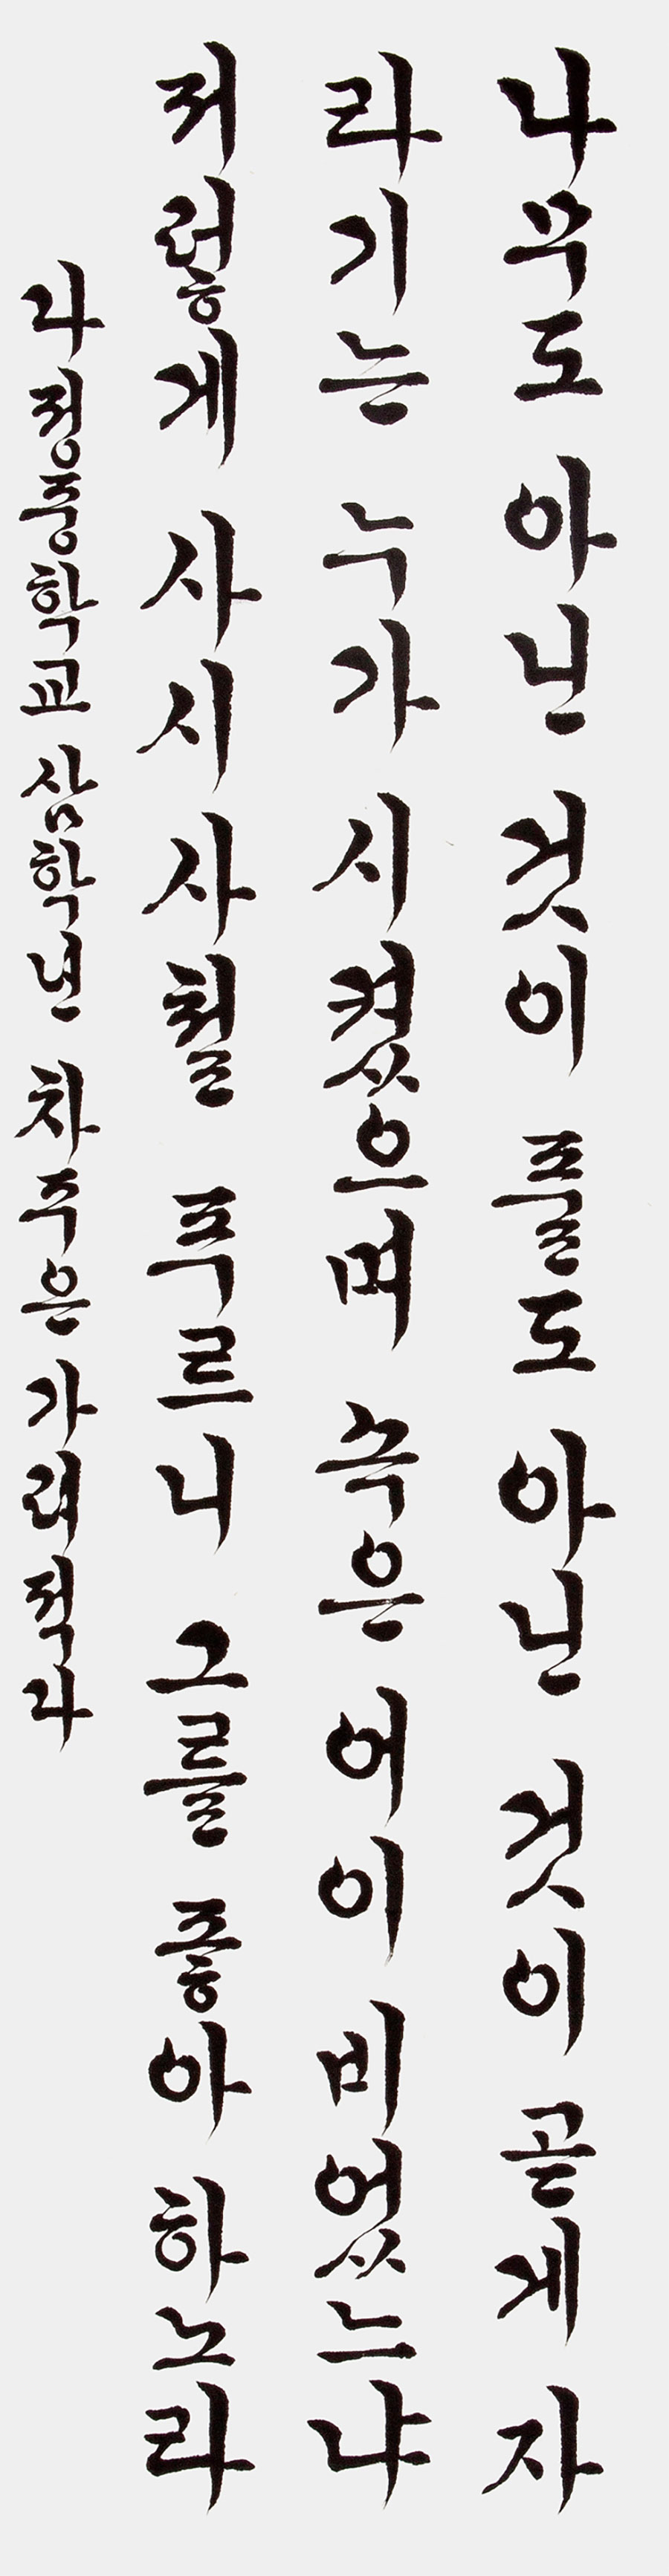 나무도 아닌 것이 풀도 아닌 것이 곧게 자
라기는 누가 시켰으며 속은 어이 비었느냐
저렇게 사시사철 푸르니 그를 좋아 하노라
다정중학교 삼학년 차주은 가려적다